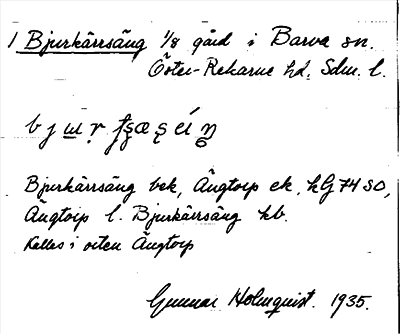 1 Bjurkärrsäng 1/8 gård i Barva sn.
Öster-Rekarne hd. Sdm. l.
Bjurkärrsäng bek, Ängtorp ek. hG 74 SO,
Ängtorp l. Bjurkärrsäng kb.
Kallas i orten Ängtorp
Gunnar Holmquist. 1935.